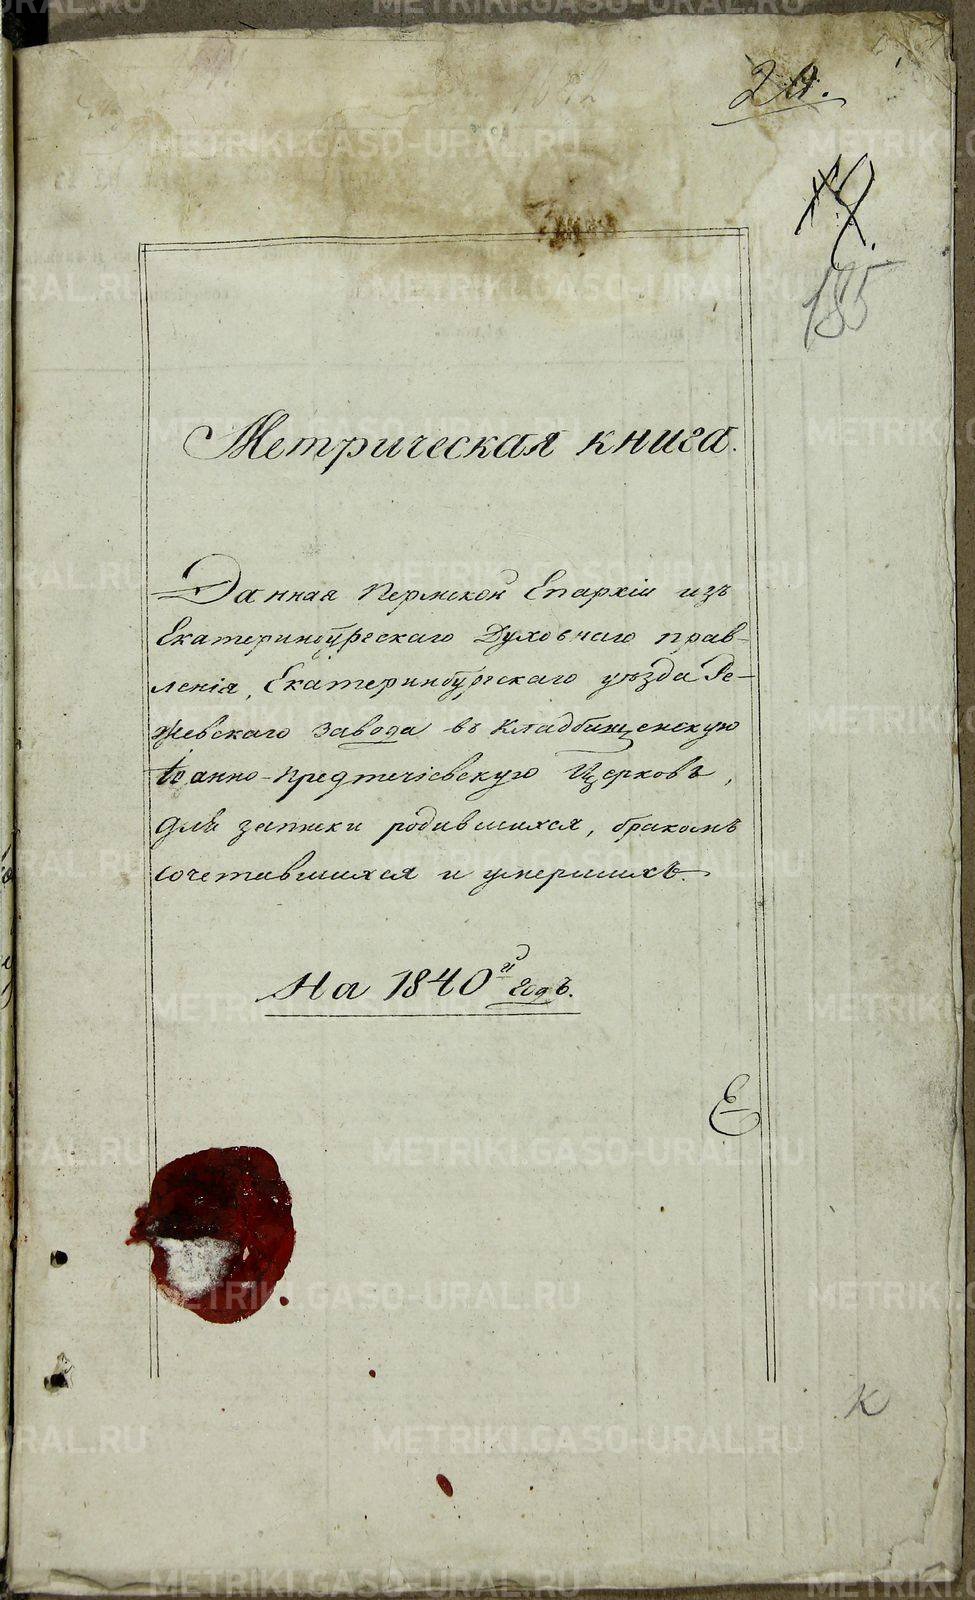 20.
185
Метрическая книга.
Данная Пермской Епархіи изъ
Екатеринбургскаго Духовнаго прав-
ленія, Екатеринбургскаго уѣзда Ре-
жевскаго завода въ Кладбищенскую
Іоанно-Предтечіевскую Церковь,
для записки родившихся, бракомъ
сочетавшихся и умершихъ.
На 1840й годъ.
К
METRIKI.GASO-URAL.RU